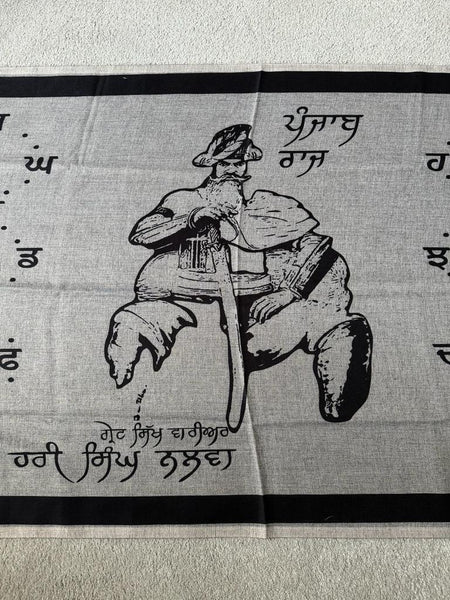 ਪੰਜਾਬ
ਰਾਜ
ਘ
ਹ
ਡ
ਝ
ਫ
ਚ
ਗ੍ਰੇਟ ਸਿੱਖ ਵਾਰੀਅਰ
ਹਰੀ ਸਿੰਘ ਨਲਵਾ